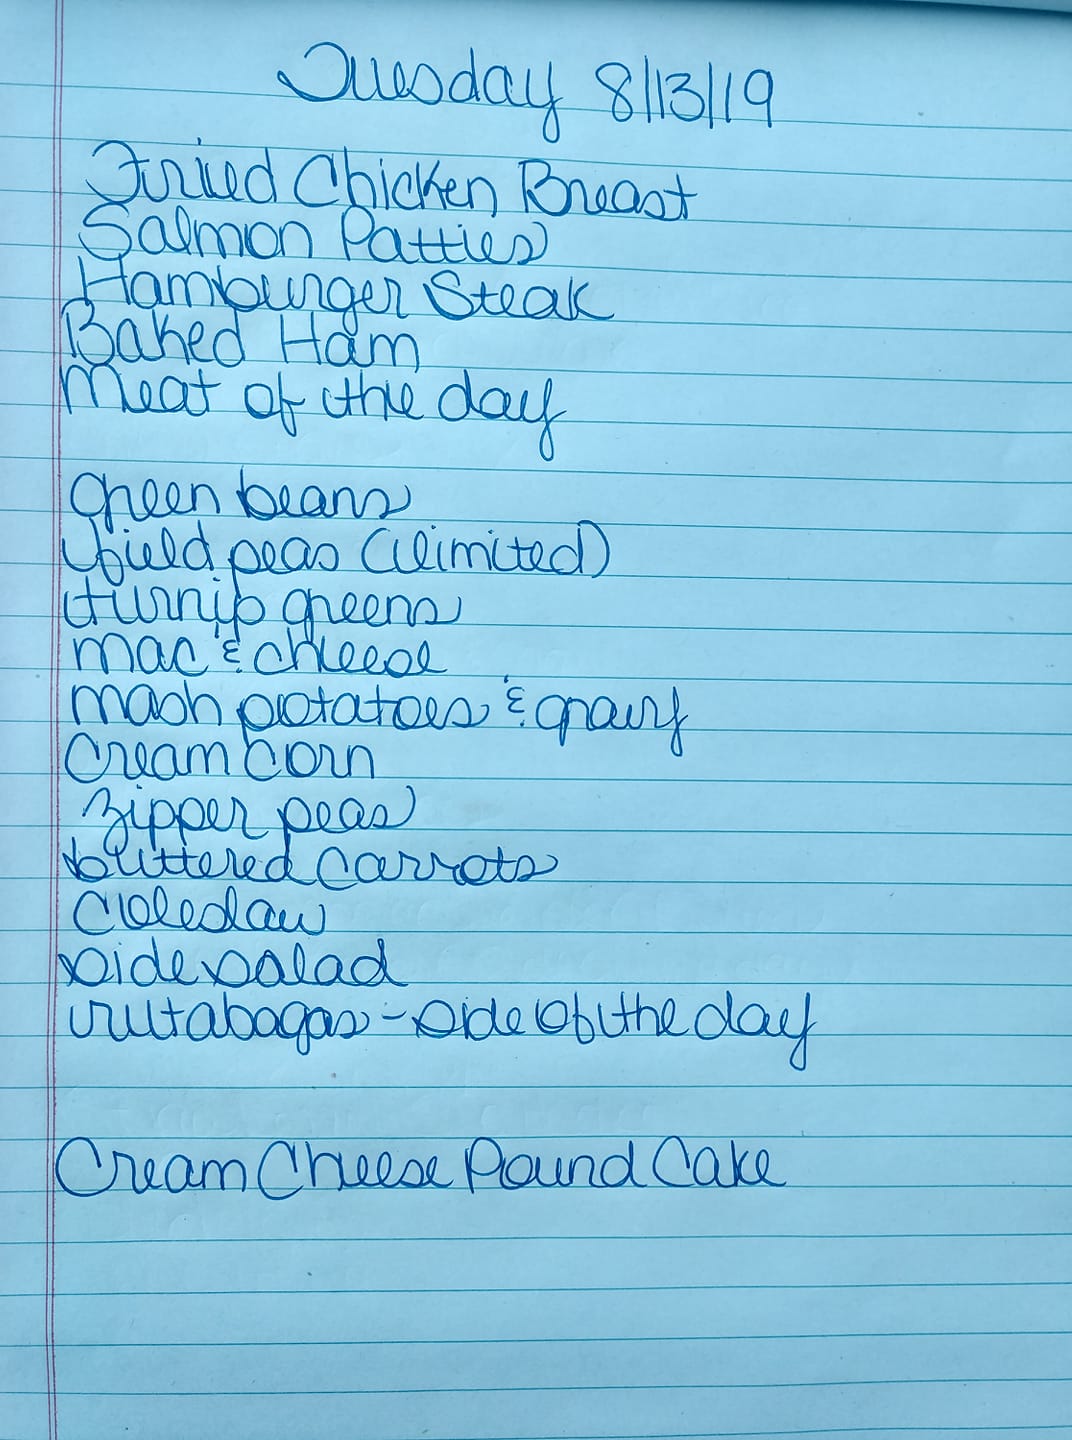 Tuesday 8/13/19
Fried Chicken Breast
Salmon Patties
Hamburger Steak
Baked Ham
Meat of the day
green beans
field peas (limited)
turnip greens
mac & cheese
mash potatoes & gravy
Cream Corn
zipper peas
buttered carrots
Coleslaw
side salad
rutabagas - side of the day
Cream Cheese Pound Cake